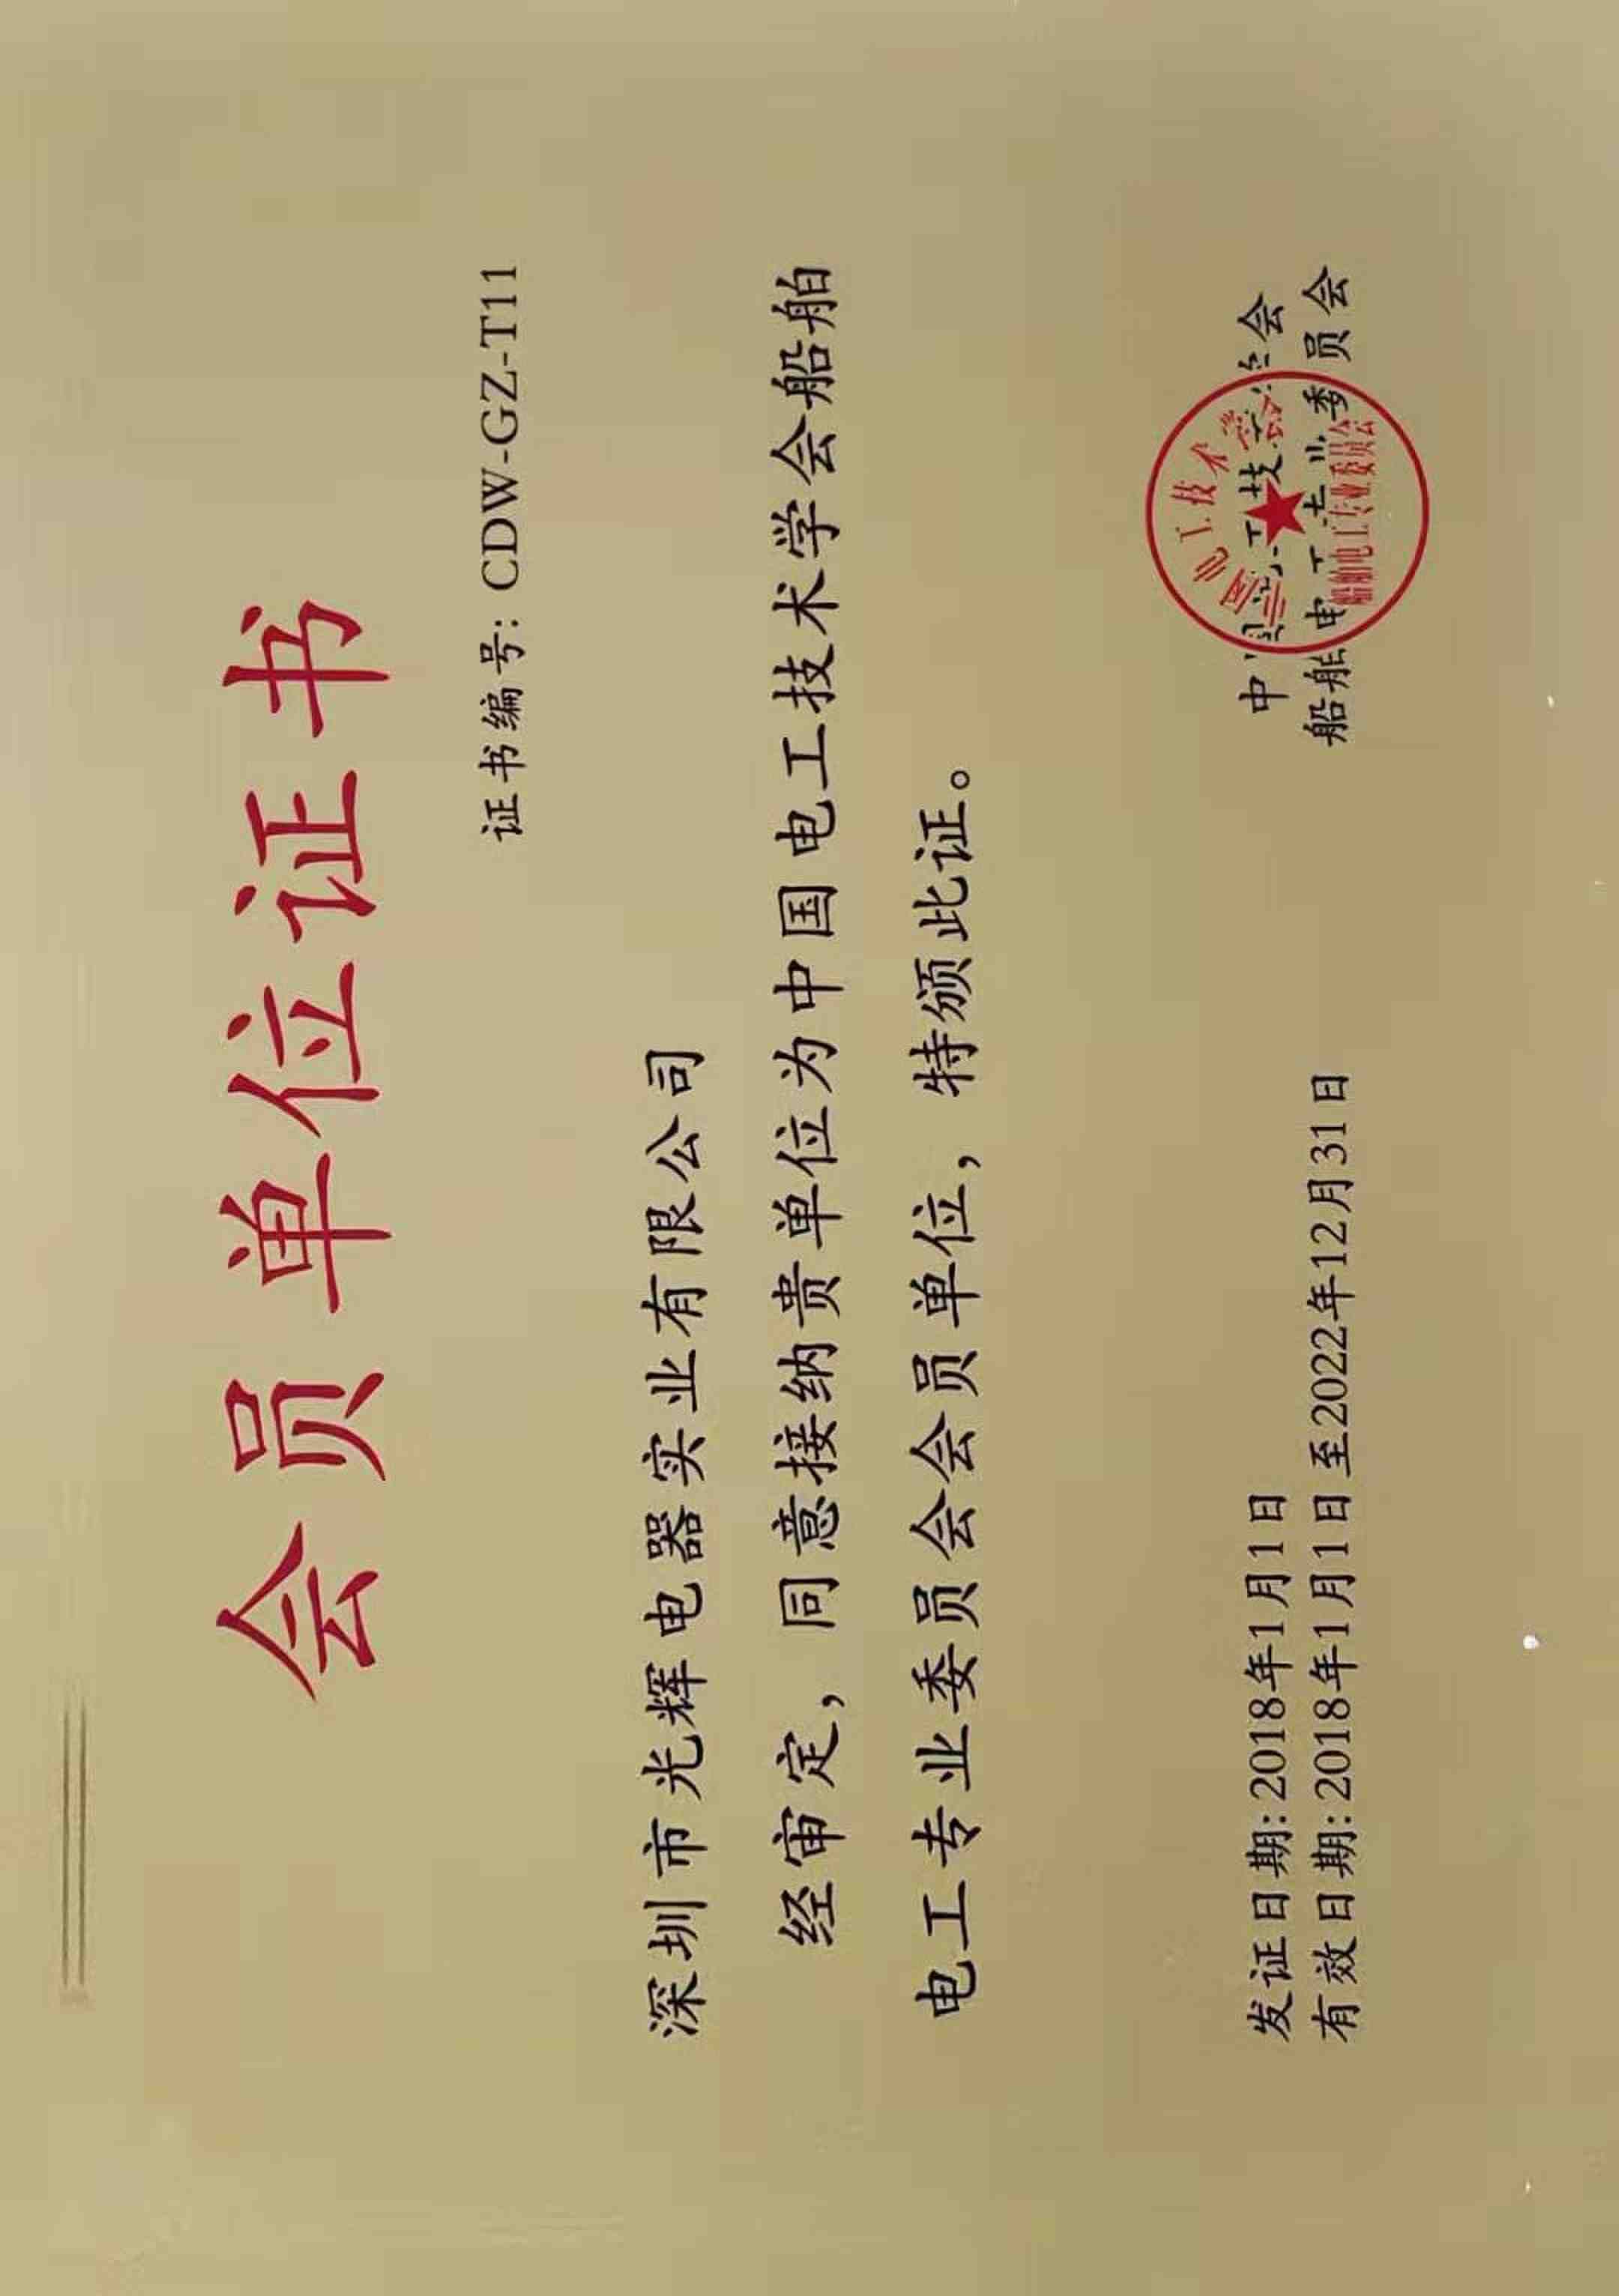 会员单位证书
证书编号: CDW-GZ-T11
深圳市光辉电器实业有限公司
经审定，同意接纳贵单位为中国电工技术学会船舶
电工专业委员会会员单位，特颁此证。
中国电工技术学会
船舶电工专业委员会
中国电工技术学会
船舶电工专业委员会
发证日期:2018年1月1日
有效日期:2018年1月1日至2022年12月31日